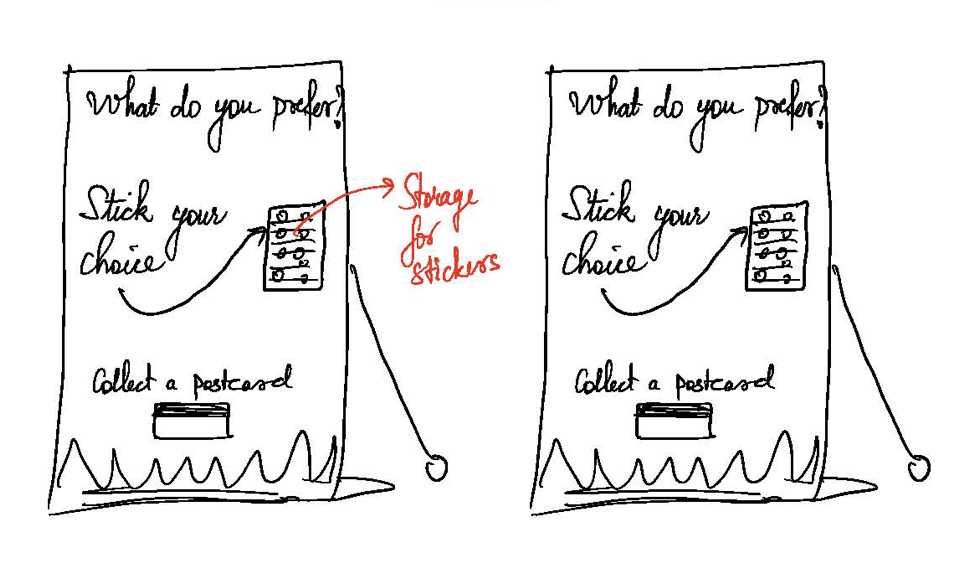 What do you prefer?
Stick your
choice
Storage
for
stickers
Collect a postcard
What do you prefer?
Stick your
choice
Collect a postcard